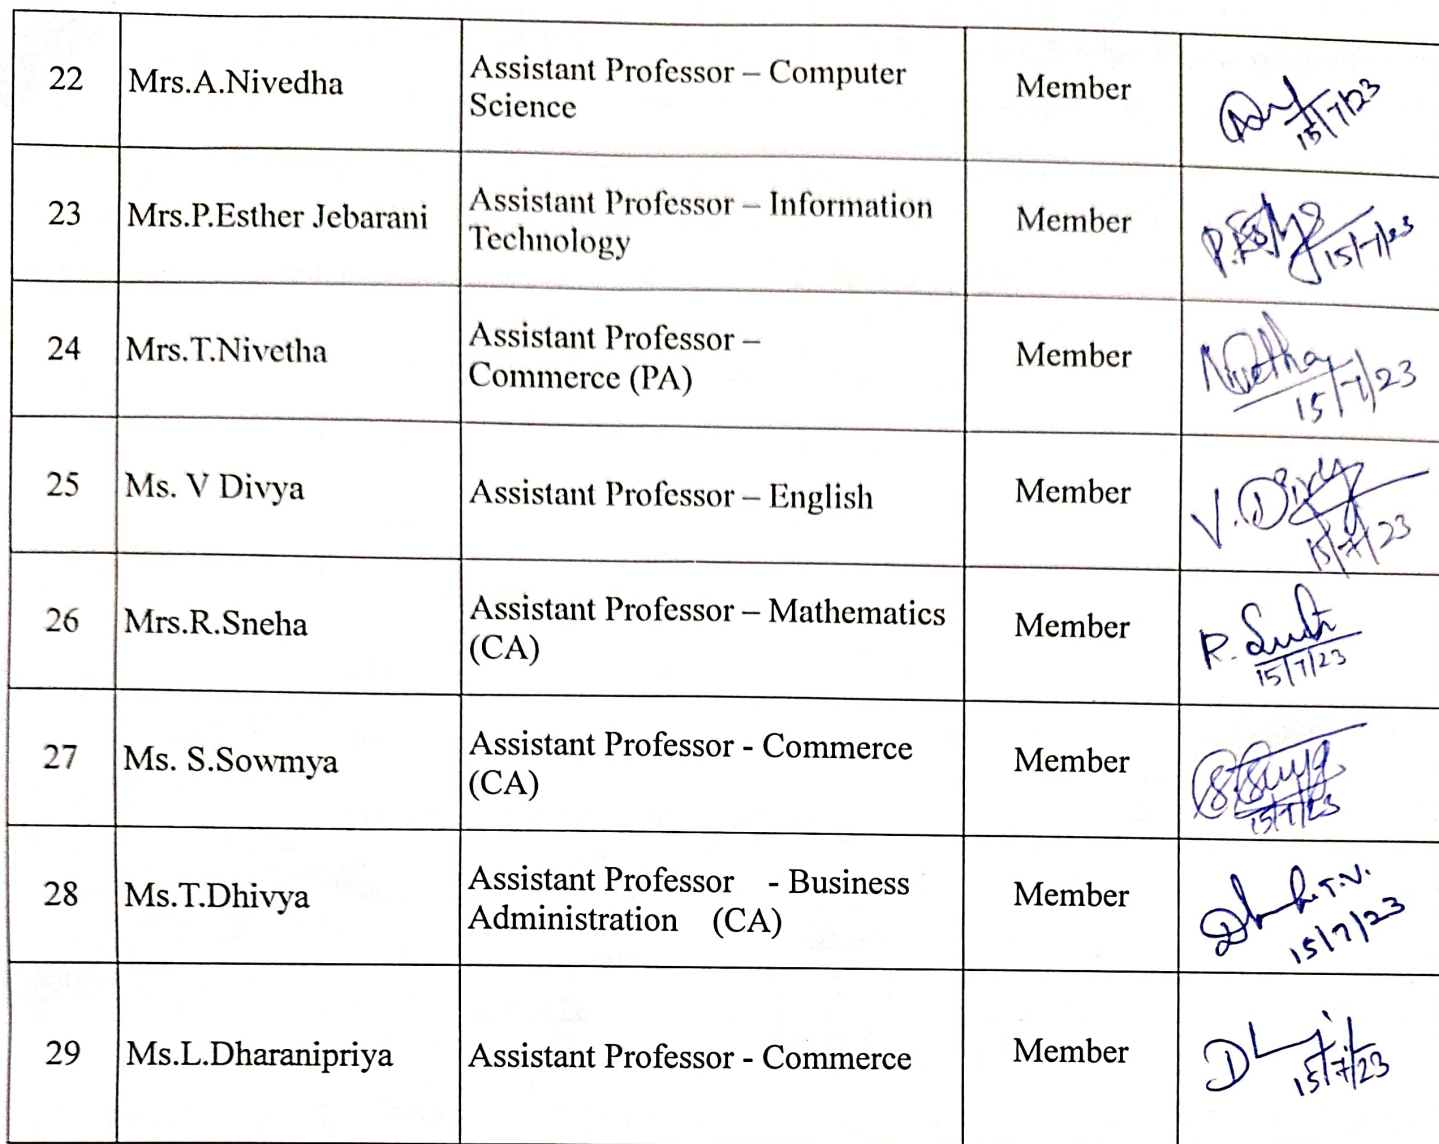 22 Mrs.A.Nivedha Assistant Professor – Computer Science Member 15/7/23
23 Mrs.P.Esther Jebarani Assistant Professor – Information Technology Member P. 15/7/23
24 Mrs.T.Nivetha Assistant Professor – Commerce (PA) Member Nivetha 15/7/23
25 Ms. V Divya Assistant Professor – English Member V. Divya 15/7/23
26 Mrs.R.Sneha Assistant Professor – Mathematics (CA) Member R. 15/7/23
27 Ms. S.Sowmya Assistant Professor - Commerce (CA) Member 15/7/23
28 Ms.T.Dhivya Assistant Professor - Business Administration (CA) Member T.V. 15/7/23
29 Ms.L.Dharanipriya Assistant Professor - Commerce Member 15/7/23